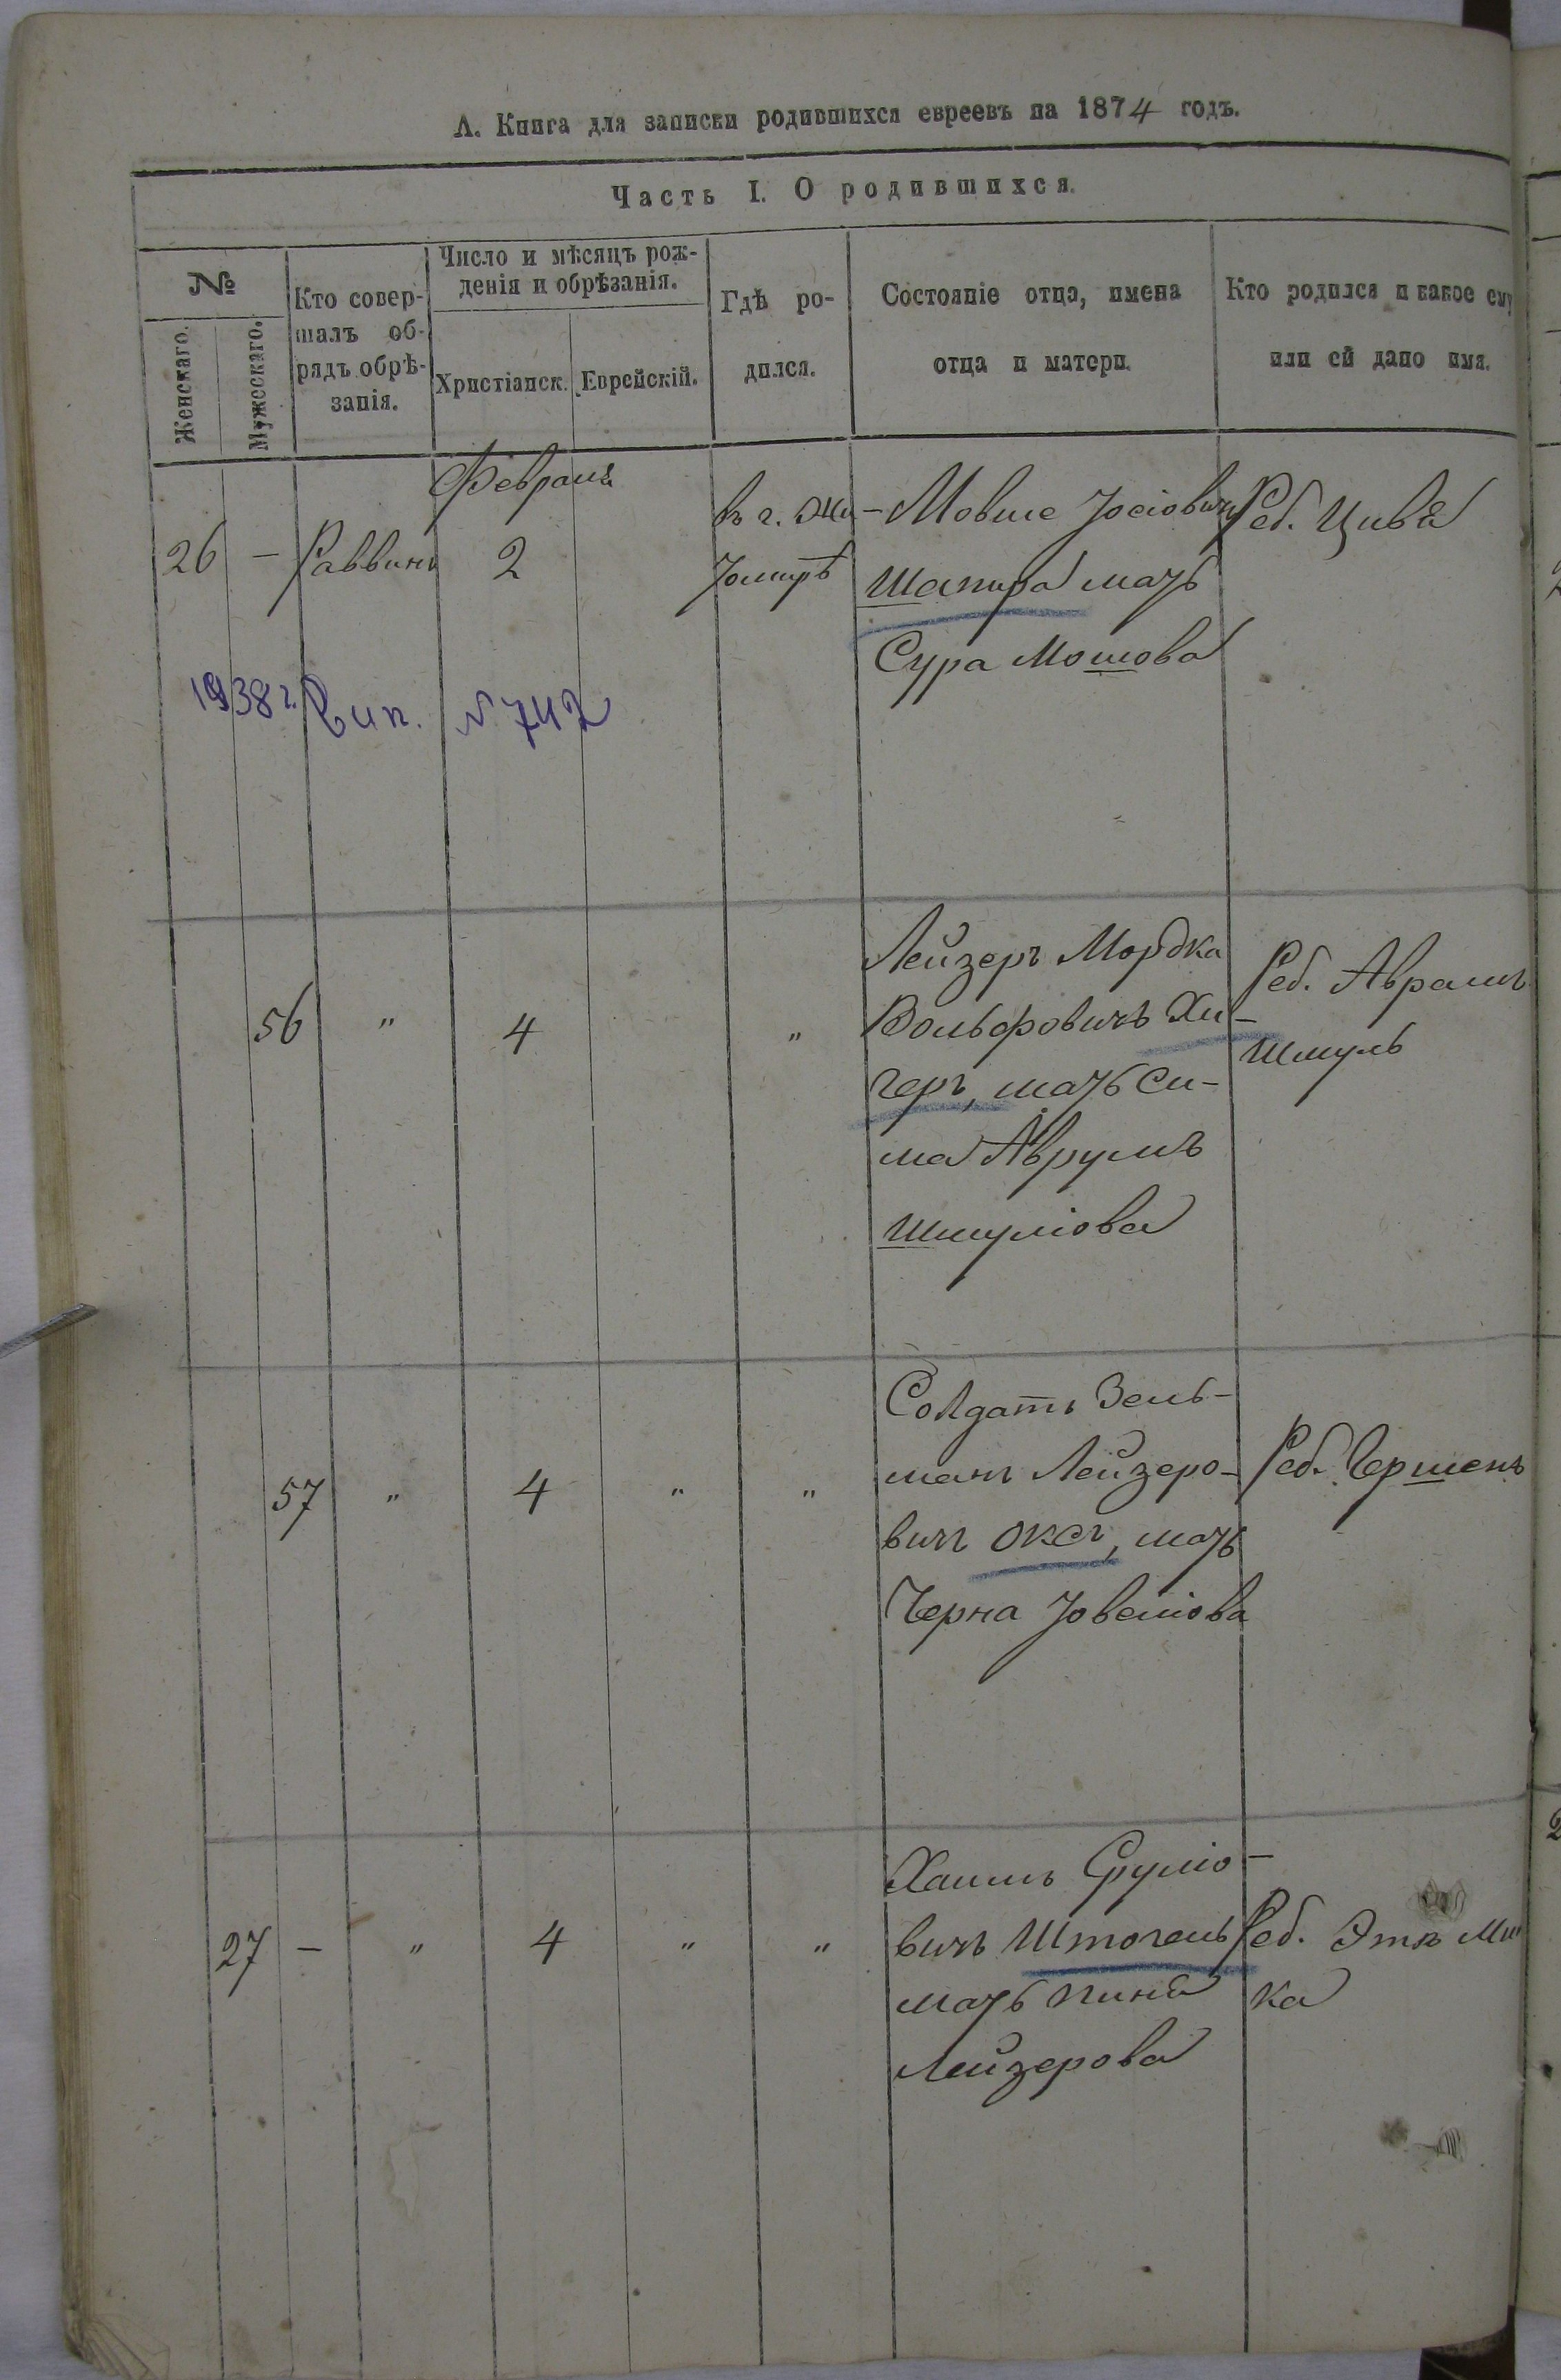 А. Книга для записки родившихся евреевъ на 1874 годъ.
Часть I. О родившихся.
№
Женскаго.
Мужескаго.
Кто совер-
шалъ об-
рядъ обрѣ-
занія.
Число и мѣсяцъ рож-
денія и обрѣзанія.
Христіанск.
Еврейскій.
Гдѣ ро-
дился.
Состояніе отца, имена
отца и матери.
Кто родился и какое ему
или ей дано имя.
Февраля
26 — Раввинъ 2
въ г. Жи-
томирѣ
Мовше Іосіовичъ
Шапира мать
Сура Мошова
Реб. Цива
1938 г. Вип. № 742
56 " 4 "
Лейзеръ Мордка
Вольфовичъ Хи-
геръ, мать Си-
ма Аврумъ
Шмуліова
Реб. Авраамъ
Шмуль
57 " 4 " "
Солдатъ Зель-
манъ Лейзеро-
вичъ Оксъ, мать
Черна Іовеліова
Реб. Гершенъ
27 — " 4 " "
Хаимъ Сруліо-
вичъ
мать
Лейзерова
Реб.
ка